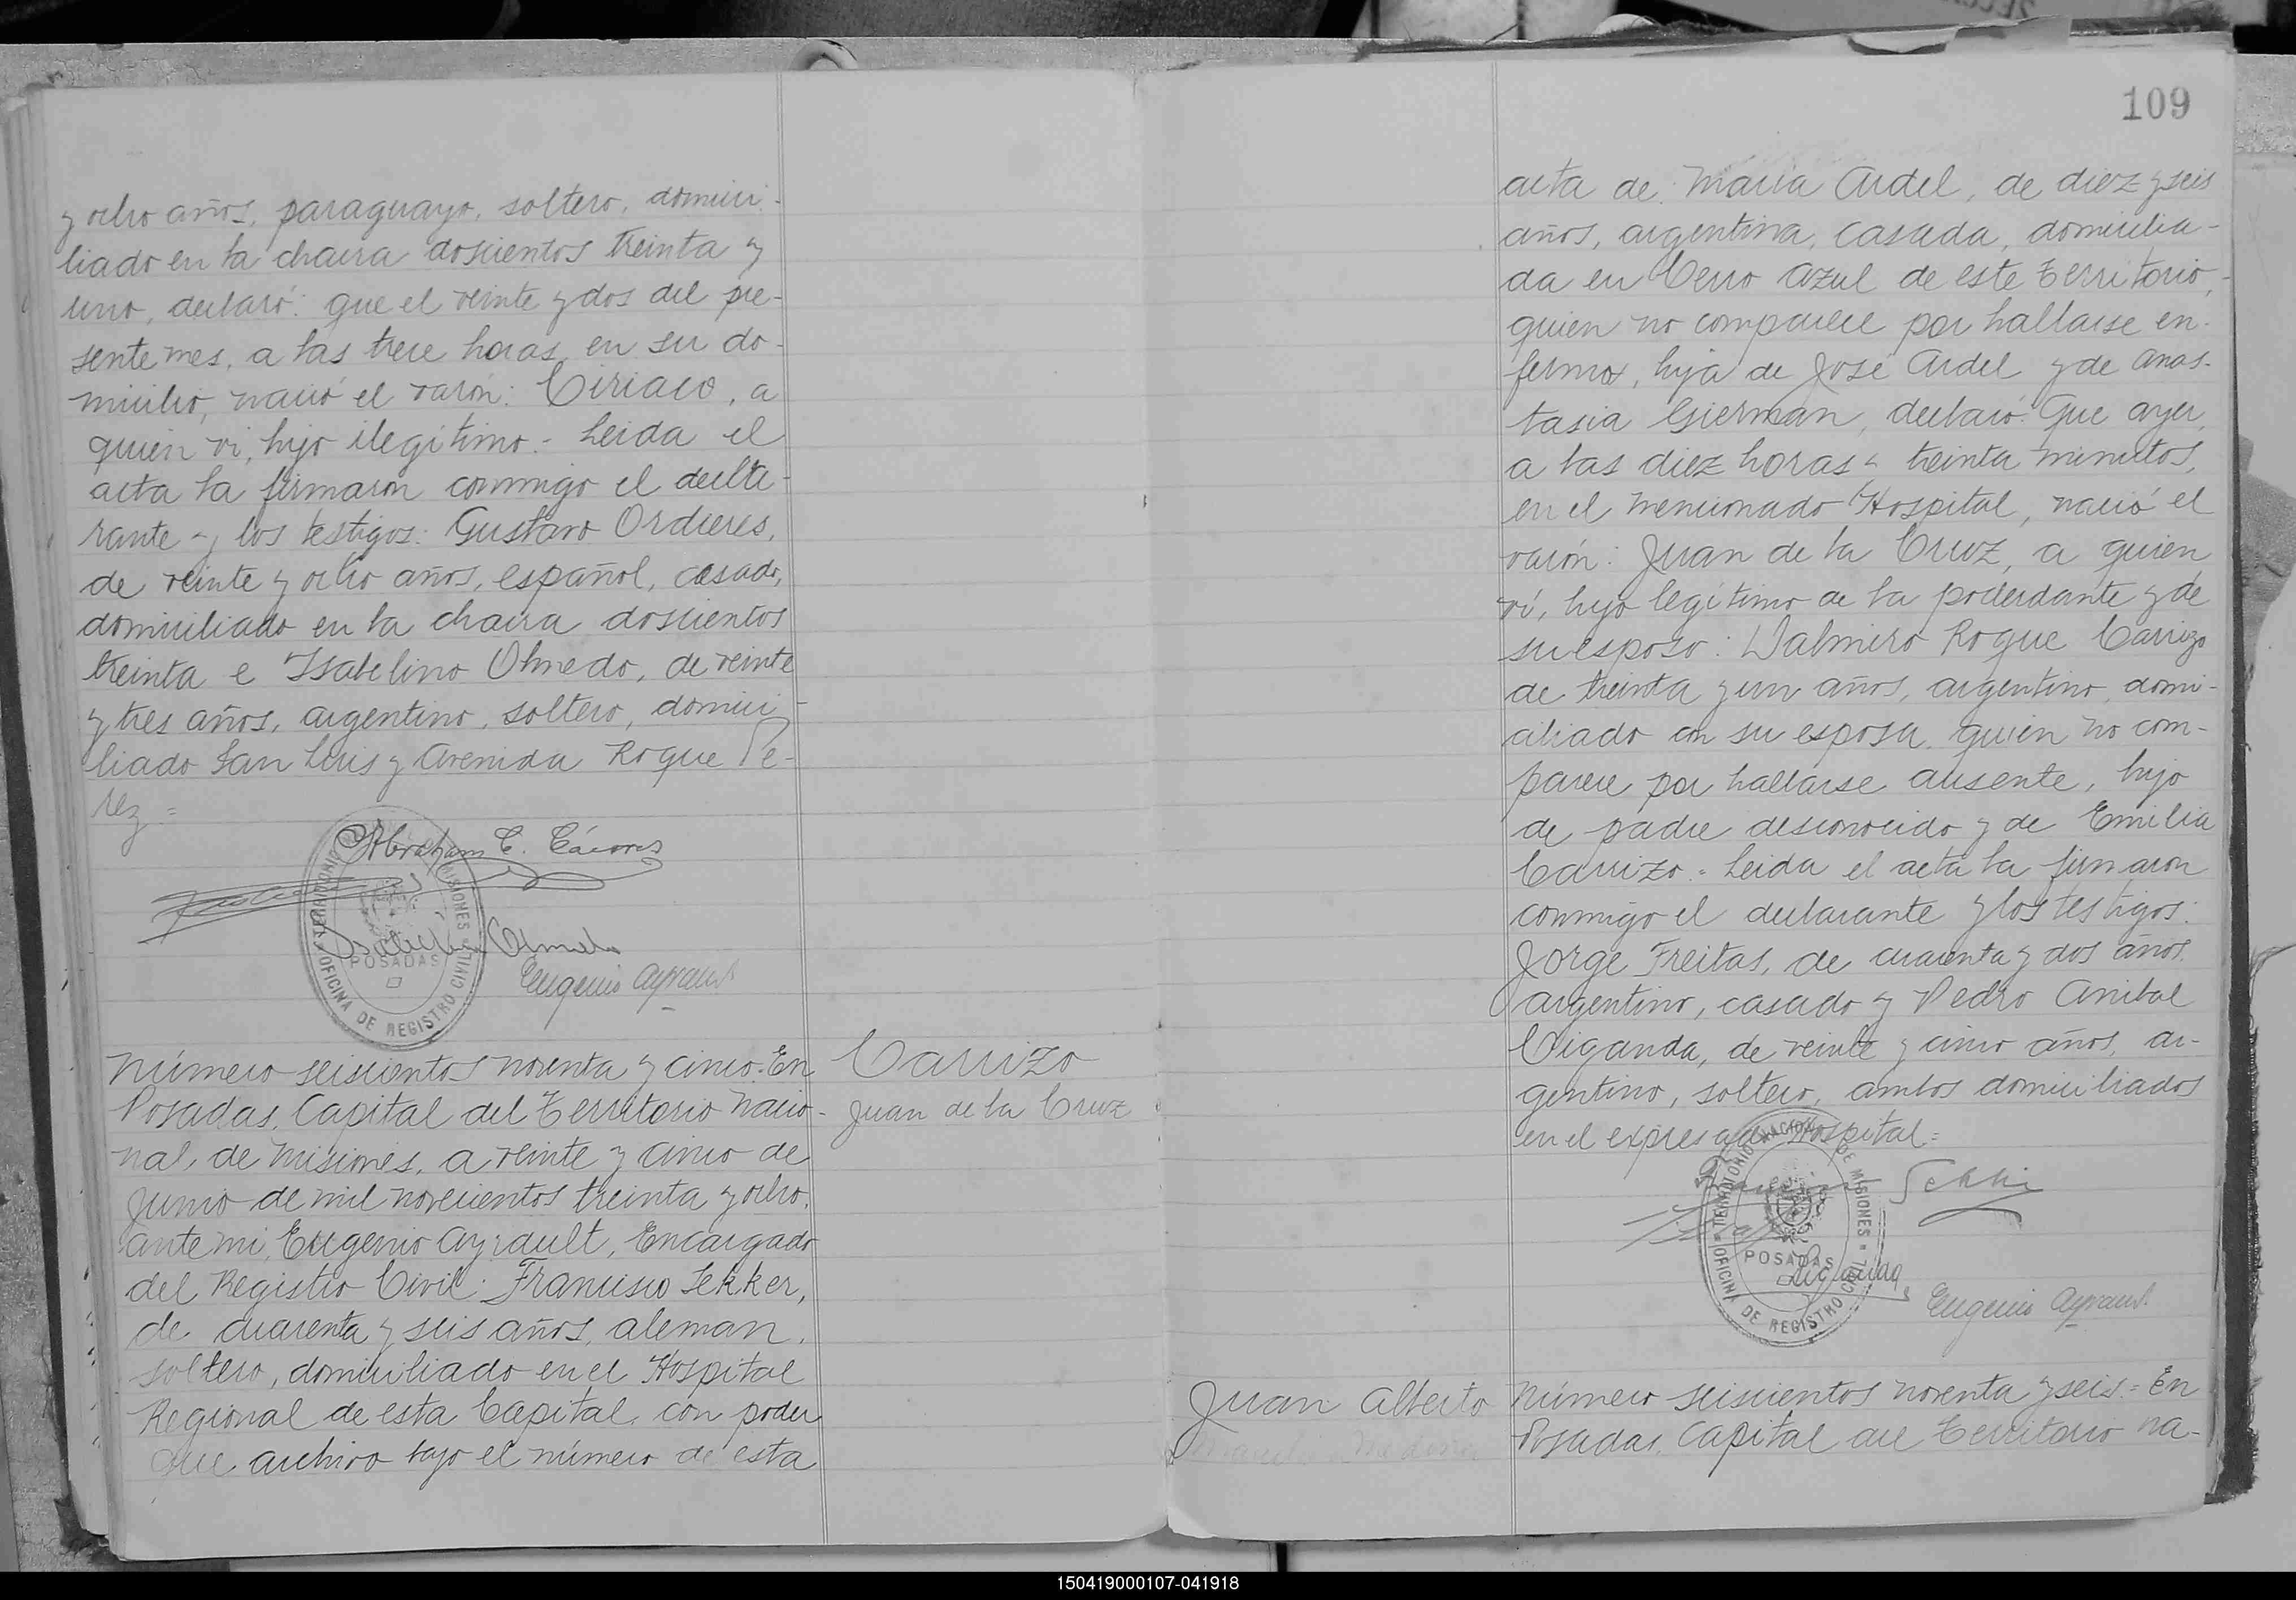 y ocho años, paraguayo, soltero, domici-
liado en la chacra doscientos treinta y
uno, declaró: que el veinte y dos del pre-
sente mes, a las trece horas, en su do-
micilio, nació el varón: Ciriaco, a
quien vi, hijo ilegítimo.- Leida el
acta la firmaron conmigo el decla-
rante y los testigos: Gustavo Ordieres,
de veinte y ocho años, español, casado,
domiciliado en la chacra doscientos
treinta e Isabelino Olmedo, de veinte
y tres años, argentino, soltero, domici-
liado San Luis y Avenida Roque Pé-
rez =
Abraham C. Cáceres
TERRITORIO MISIONES
OFICINA DE REGISTRO CIVIL
POSADAS
Olmedo
Eugenio Ayrault
Número seiscientos noventa y cinco.- En
Posadas, Capital del Territorio Nacio-
nal, de Misiones, a veinte y cinco de
Junio de mil novecientos treinta y ocho,
ante mi, Eugenio Ayrault, Encargado
del Registro Civil: Francisco Sekker,
de cuarenta y seis años, aleman,
soltero, domiciliado en el Hospital
Regional de esta Capital, con poder
que archivo bajo el número de esta
Carrizo
Juan de la Cruz
109
acta de María Ardel, de diez y seis
años, argentina, casada, domicilia-
da en Cerro Azul de este Territorio,
quien no comparece por hallarse en-
ferma, hija de José Ardel y de Anas-
tasia Gierman, declaró: Que ayer,
a las diez horas y treinta minutos,
en el mencionado Hospital, nació el
varón: Juan de la Cruz, a quien
vi, hijo legítimo de la poderdante y de
su esposo: Walmiro Roque Carrizo
de treinta y un años, argentino, domi-
ciliado con su esposa, quien no com-
parece por hallarse ausente, hijo
de padre desconocido y de Emilia
Carrizo.= Leida el acta la firmaron
conmigo el declarante y los testigos:
Jorge Freitas, de cuarenta y dos años,
argentino, casado y Pedro Anibal
Ciganda, de veinte y cinco años, ar-
gentino, soltero, ambos domiciliados
en el expresado Hospital=
TERRITORIO NACIONAL DE MISIONES
OFICINA DE REGISTRO CIVIL
POSADAS
Ciganda
Eugenio Ayrault
Juan Alberto
Número seiscientos noventa y seis.= En
Posadas, Capital del Territorio Na-
150419000107-041918